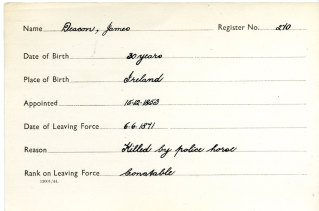 Name Deacon, James Register No. 210
Date of Birth 30 years
Place of Birth Ireland
Appointed 15-12-1853
Date of Leaving Force 6-6-1871
Reason Killed by police horse
Rank on Leaving Force Constable